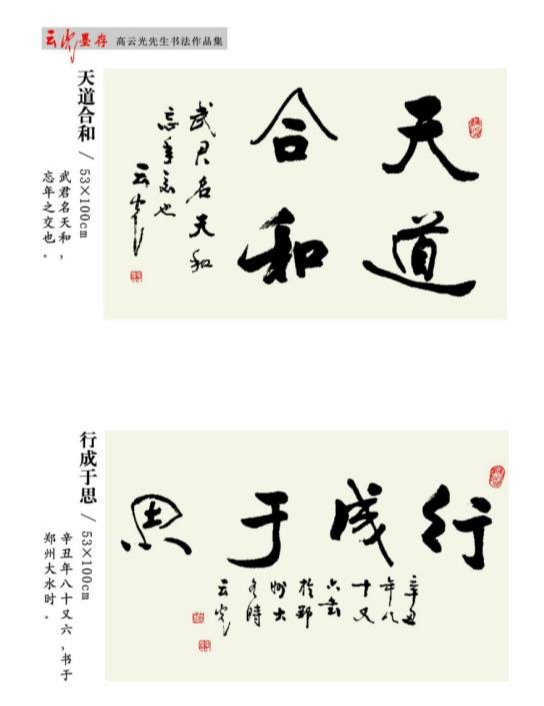 云光墨存 高云光先生书法作品集
天道合和 / 53×100cm
武君名天和，
忘年之交也。
天道
合和
武君名天和
忘年交也
云光
行成于思 / 53×100cm
辛丑年八十又六，书于
郑州大水时。
行成于思
辛丑
年八
十又
六书
於郑
州大
水時
云光